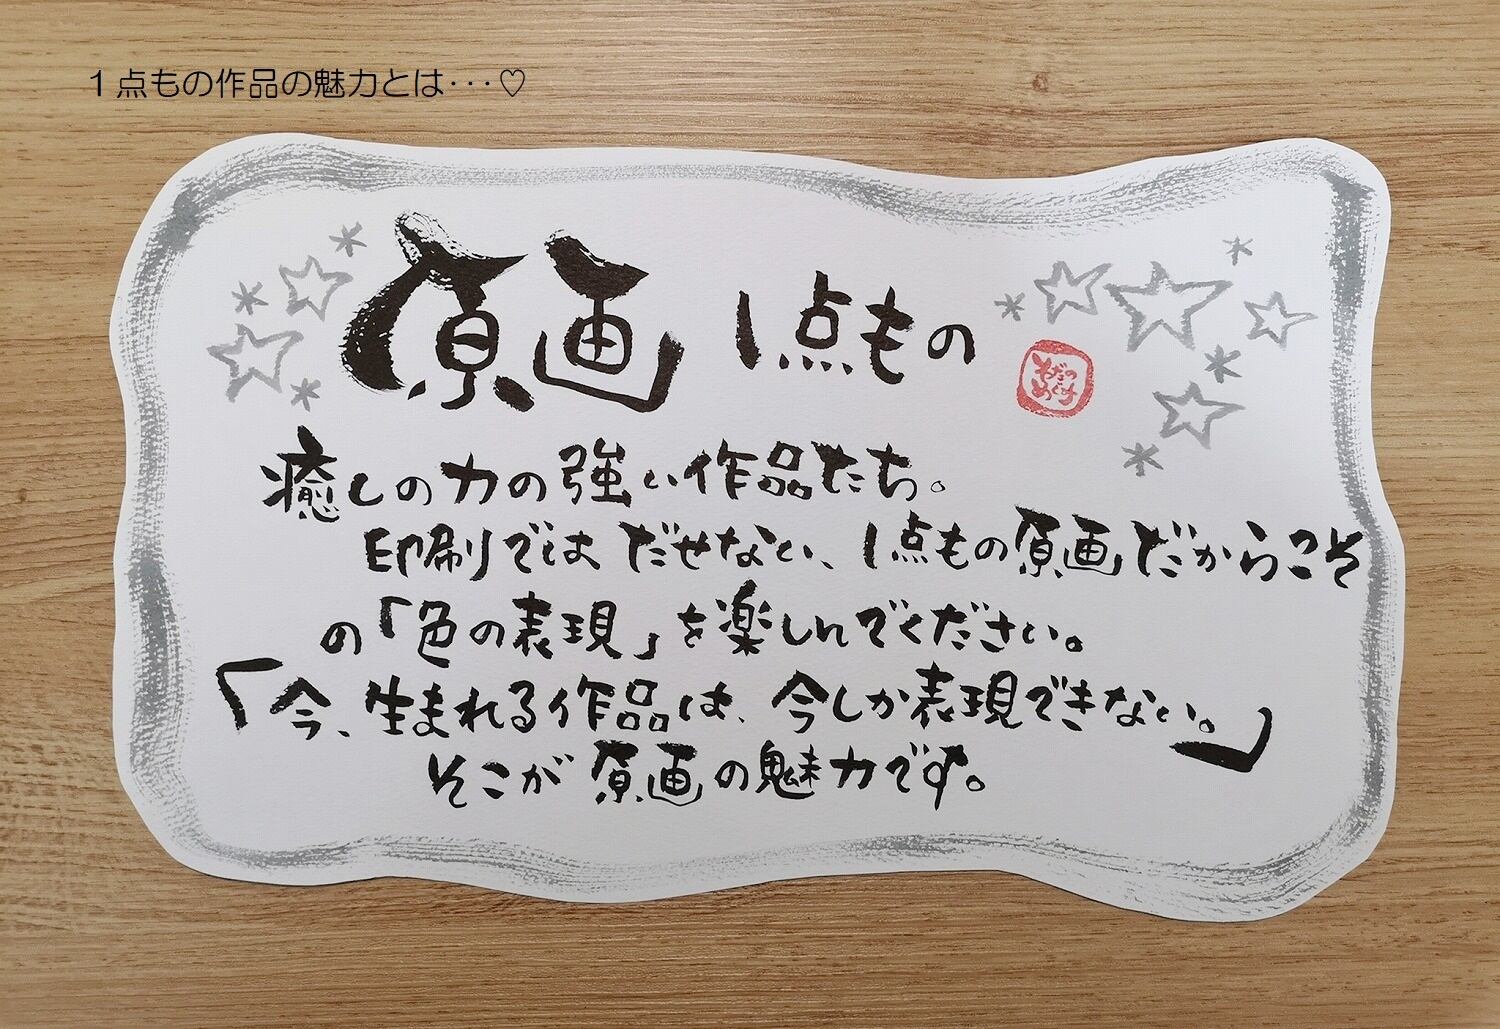 １点もの作品の魅力とは･･･♡
原画 1点もの
癒しの力の強い作品たち。
印刷ではだせない、1点もの原画だからこそ
の「色の表現」を楽しんでください。
「今、生まれる作品は、今しか表現できない。」
そこが原画の魅力です。